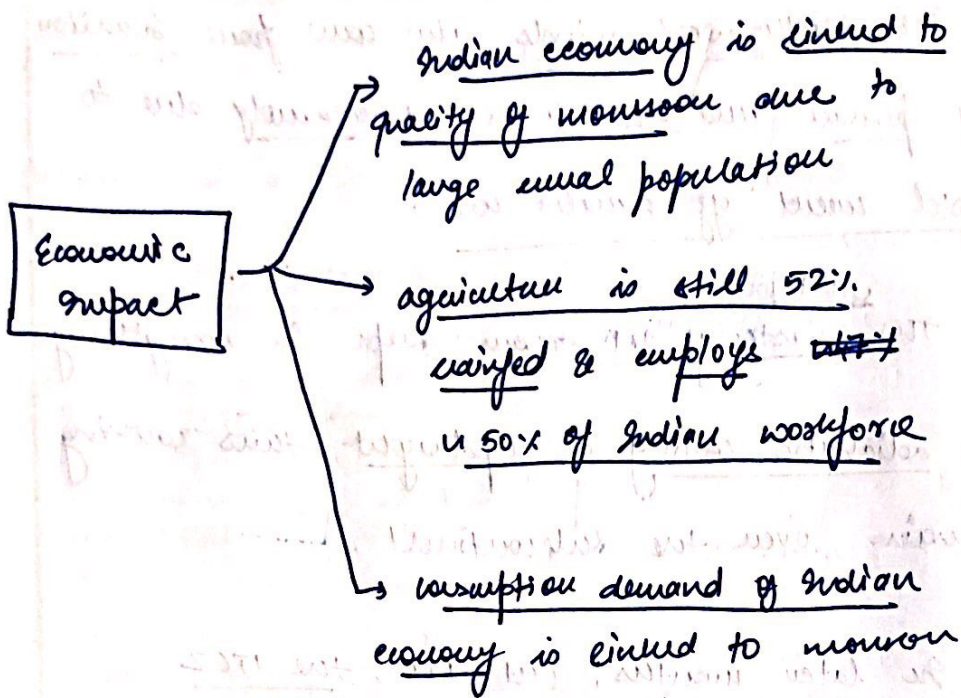 Indian economy is linked to
quality of monsoon due to
large rural population
Economic
Impact
agriculture is still 52%
rainfed & employs
~ 50% of Indian workforce
consumption demand of Indian
economy is linked to monsoon